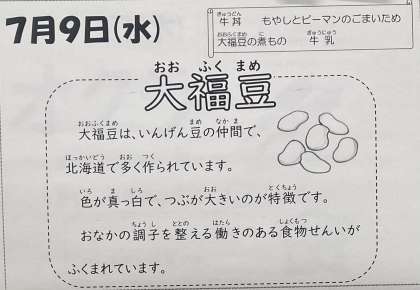 7月9日(水)
ぎゅうどん
牛丼　もやしとピーマンのごまいため
おおふくまめ　に　ぎゅうにゅう
大福豆の煮もの　牛乳
おお　ふく　まめ
大福豆
おおふくまめ　まめ　なかま
大福豆は、いんげん豆の仲間で、
ほっかいどう　おお　つく
北海道で多く作られています。
いろ　ま　しろ　おお　とくちょう
色が真っ白で、つぶが大きいのが特徴です。
ちょうし　ととの　はたら　しょくもつ
おなかの調子を整える働きのある食物せんいが
ふくまれています。